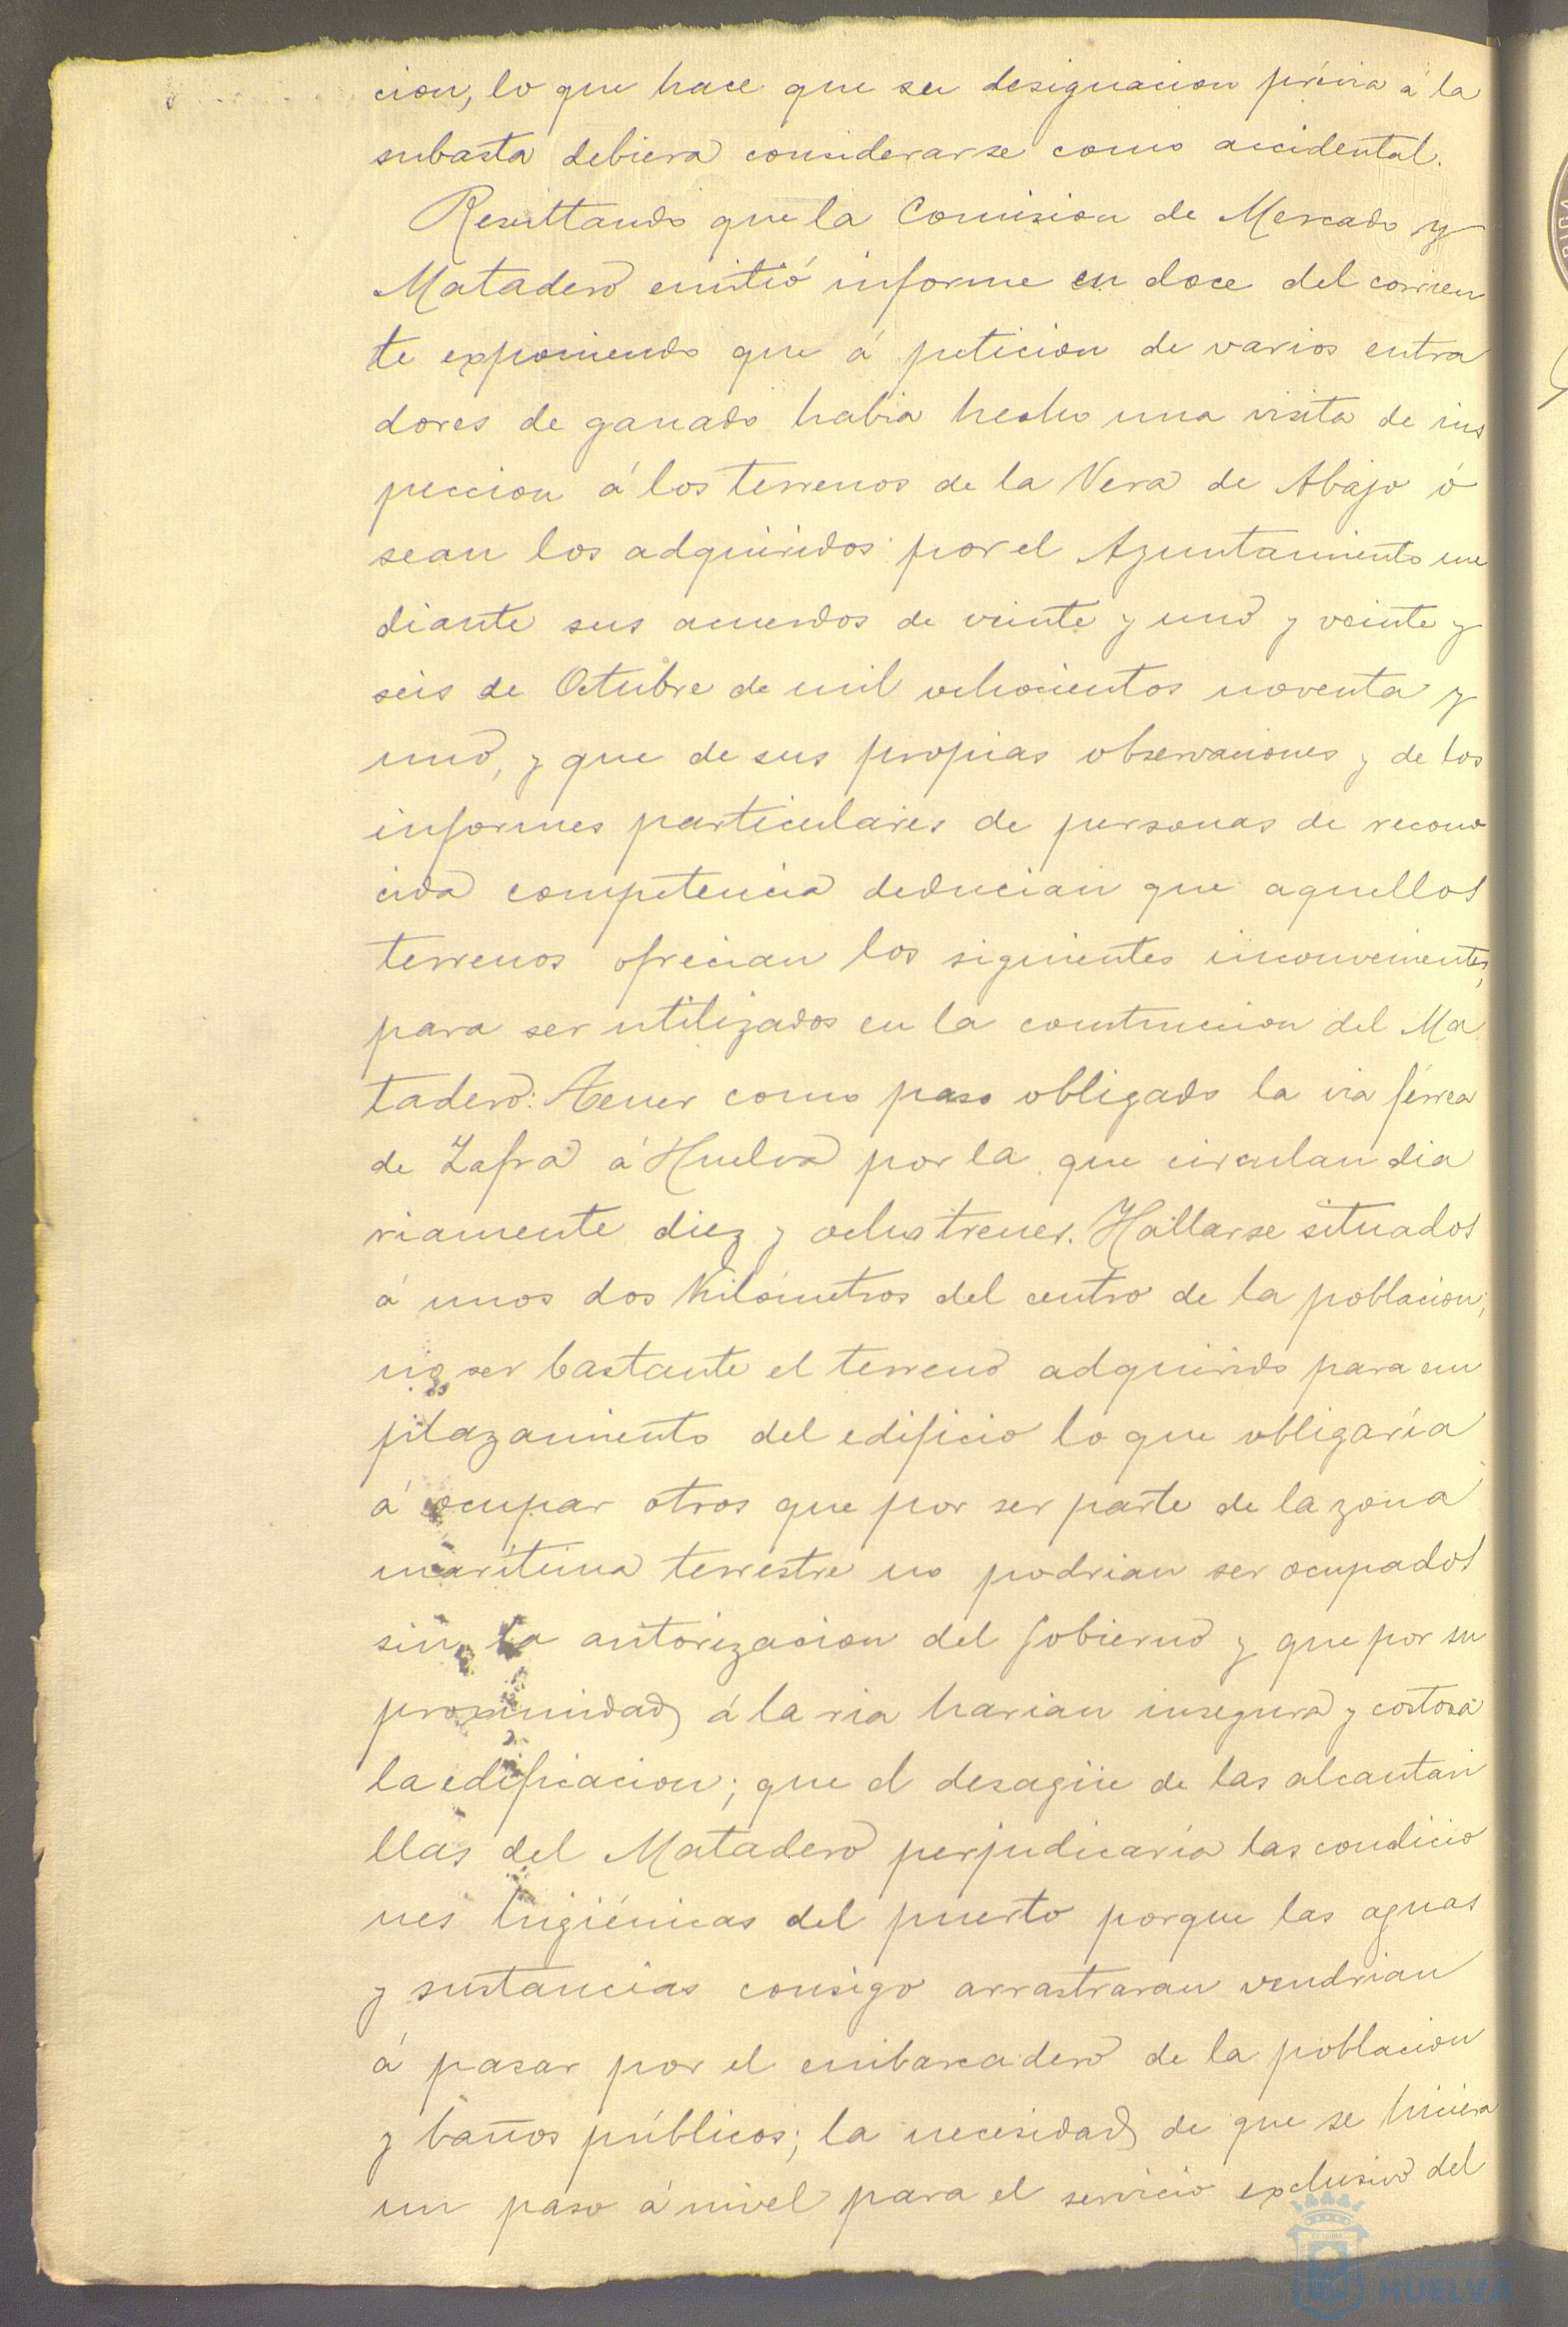 cion, lo que hace que su designacion prévia á la
subasta debiera considerarse como accidental.
Resultando que la Comision de Mercado y
Matadero emitió informe en doce del corrien
te exponiendo que á peticion de varios entra
dores de ganado habia hecho una visita de ins
peccion á los terrenos de la Vera de Abajo ó
sean los adquiridos por el Ayuntamiento me
diante sus acuerdos de veinte y uno y veinte y
seis de Octubre de mil ochocientos noventa y
uno, y que de sus propias observaciones y de los
informes particulares de personas de recono
cida competencia deducian que aquellos
terrenos ofrecian los siguientes inconvenientes,
para ser utilizados en la construccion del Ma
tadero: Tener como paso obligado la via férrea
de Zafra á Huelva por la que circulan dia
riamente diez y ocho trenes. Hallarse situados
á unos dos Kilómetros del centro de la poblacion;
no ser bastante el terreno adquirido para em
plazamiento del edificio lo que obligaría
á ocupar otros que por ser parte de la zona
marítima terrestre no podrian ser ocupados
sin la autorizacion del Gobierno y que por su
proximidad á la ria harian insegura y costosa
la edificacion; que el desagüe de las alcantari
llas del Matadero perjudicaría las condicio
nes higiénicas del puerto porque las aguas
y sustancias consigo arrastraran vendrian
á pasar por el embarcadero de la poblacion
y baños públicos; la necesidad de que se hiciera
un paso á nivel para el servicio exclusivo del
HUELVA